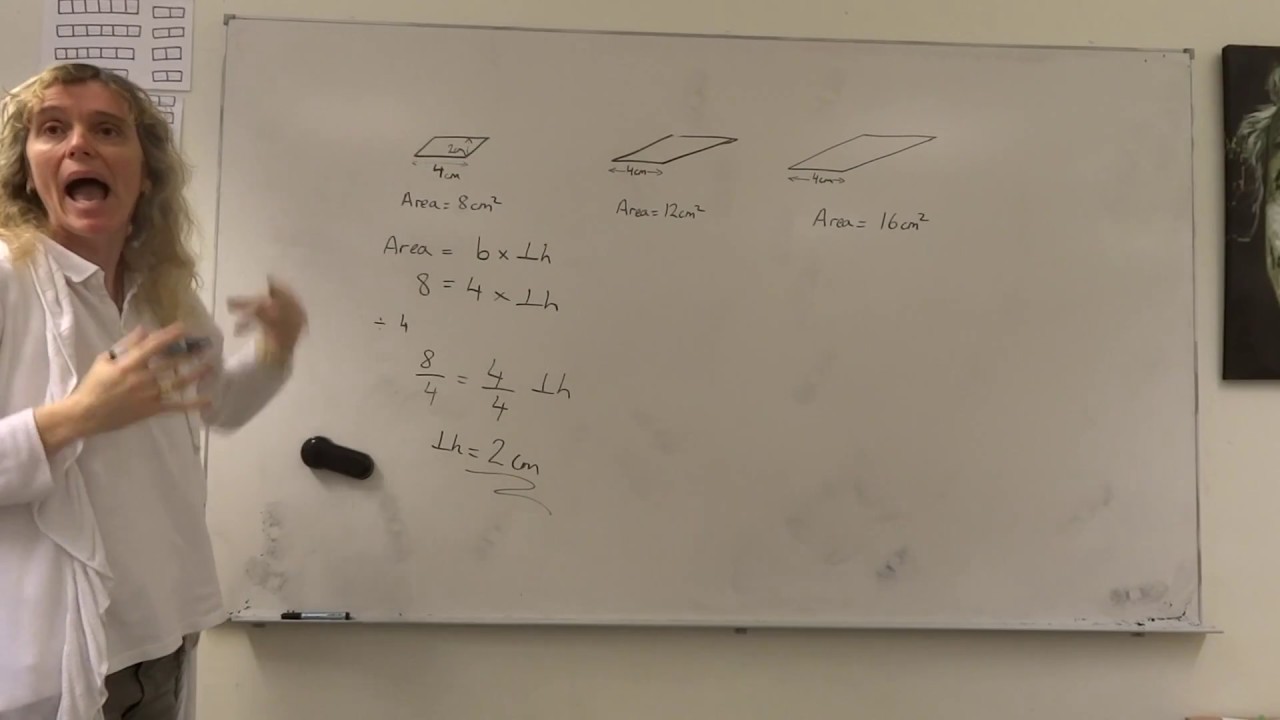 2cm
4cm
Area = 8cm²
4cm
Area = 12cm²
4cm
Area = 16cm²
Area = b × ⊥h
8 = 4 × ⊥h
÷ 4
8/4 = 4/4 ⊥h
⊥h = 2 cm